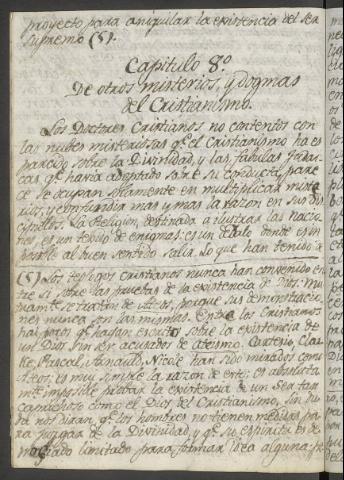 proyecto para aniquilar la existencia del Ser
Supremo (5).
Capitulo 8º
De otros misterios, y dogmas
del Cristianismo.
Los Doctores Cristianos no contentos con
las nubes misteriosas q.e el Cristianismo ha es
parcido sobre la Divinidad, y las fabulas judai
cas q.e havia adoptado sobre su conducta, pare
ce se ocupan solamente en multiplicar miste
rios, y confundir mas y mas la razon en sus Dis
cipulos. La Religion, destinada a ilustrar las nacio
nes, es un tejido de enigmas: es un dedalo donde es im
posible al buen sentido salir. Lo que han tenido de
(5) Los teologos cristianos nunca han convenido en
tre si sobre las pruebas de la existencia de Dios. Mu
tuam.te se tratan de Ateos, porque sus demonstracio
nes nunca son las mismas. Entre los Cristianos
hai pocos q.e hayan escrito sobre la existencia de
un Dios sin ser acusados de ateismo. Carterio, Clar
ke, Pascal, Arnauld, Nicole han sido mirados como
Ateos; es muy simple la razon de esto; es absoluta
m.te imposible probar la existencia de un Ser tan
caprichoso como el Dios del Cristianismo. Sin du
da nos diran q.e los hombres no tienen medidas pa
ra juzgar de la Divinidad, y q.e su espiritu es de
masiado limitado para formar idea alguna;